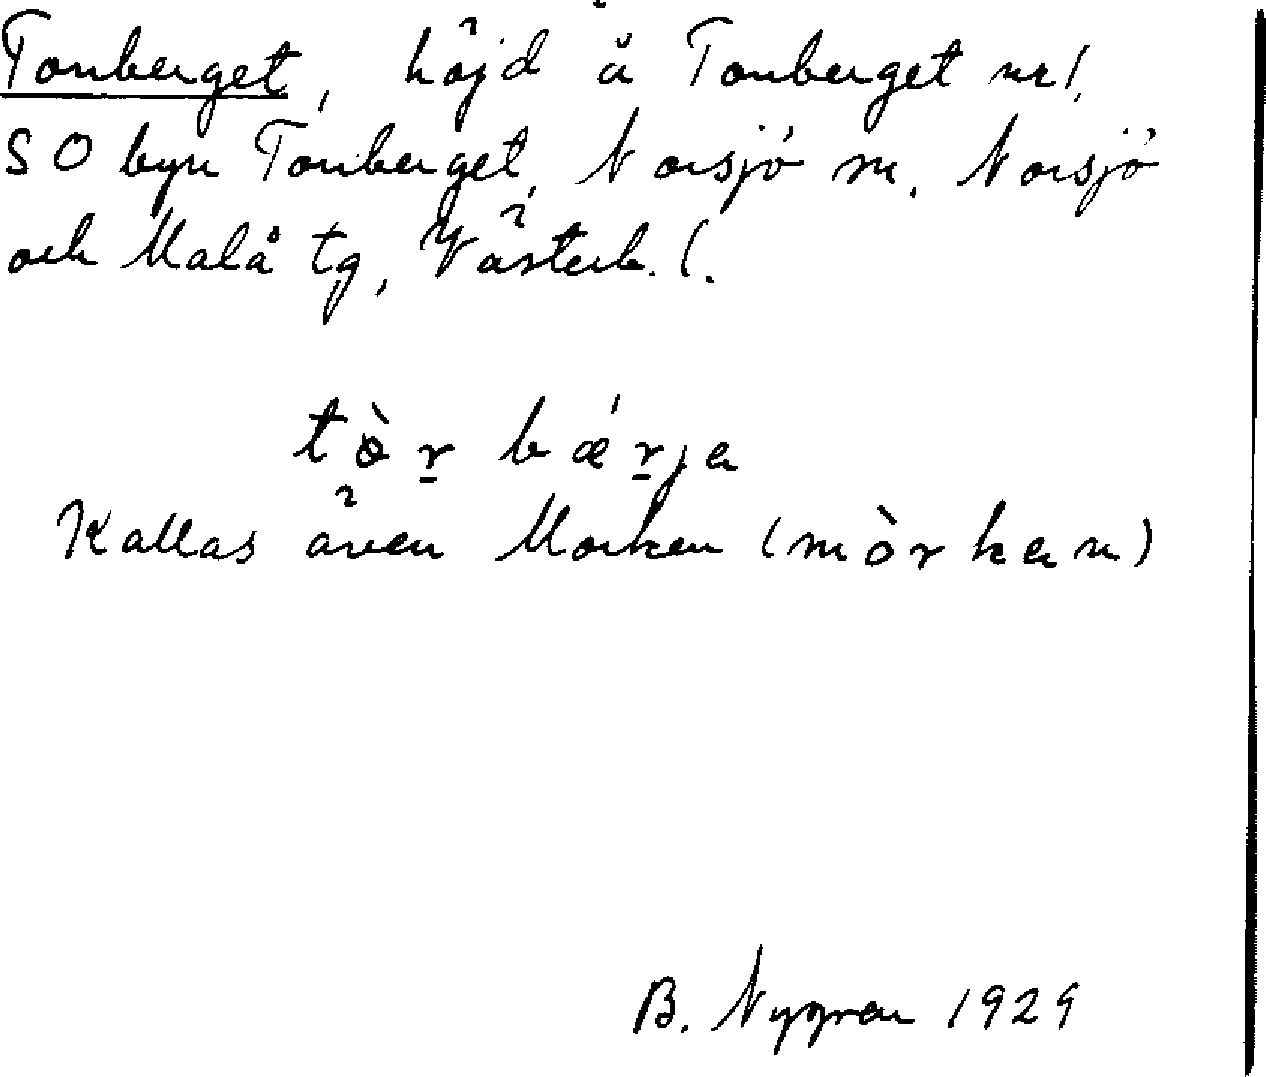 Torrberget, höjd å Torrberget nr 1,
SO byn Torrberget, Norsjö sn. Norsjö
och Malå tg, Västerb. l.
tò̱r bǽr̠ja
Kallas även Morken (mòrkan)
B. Nygren 1929